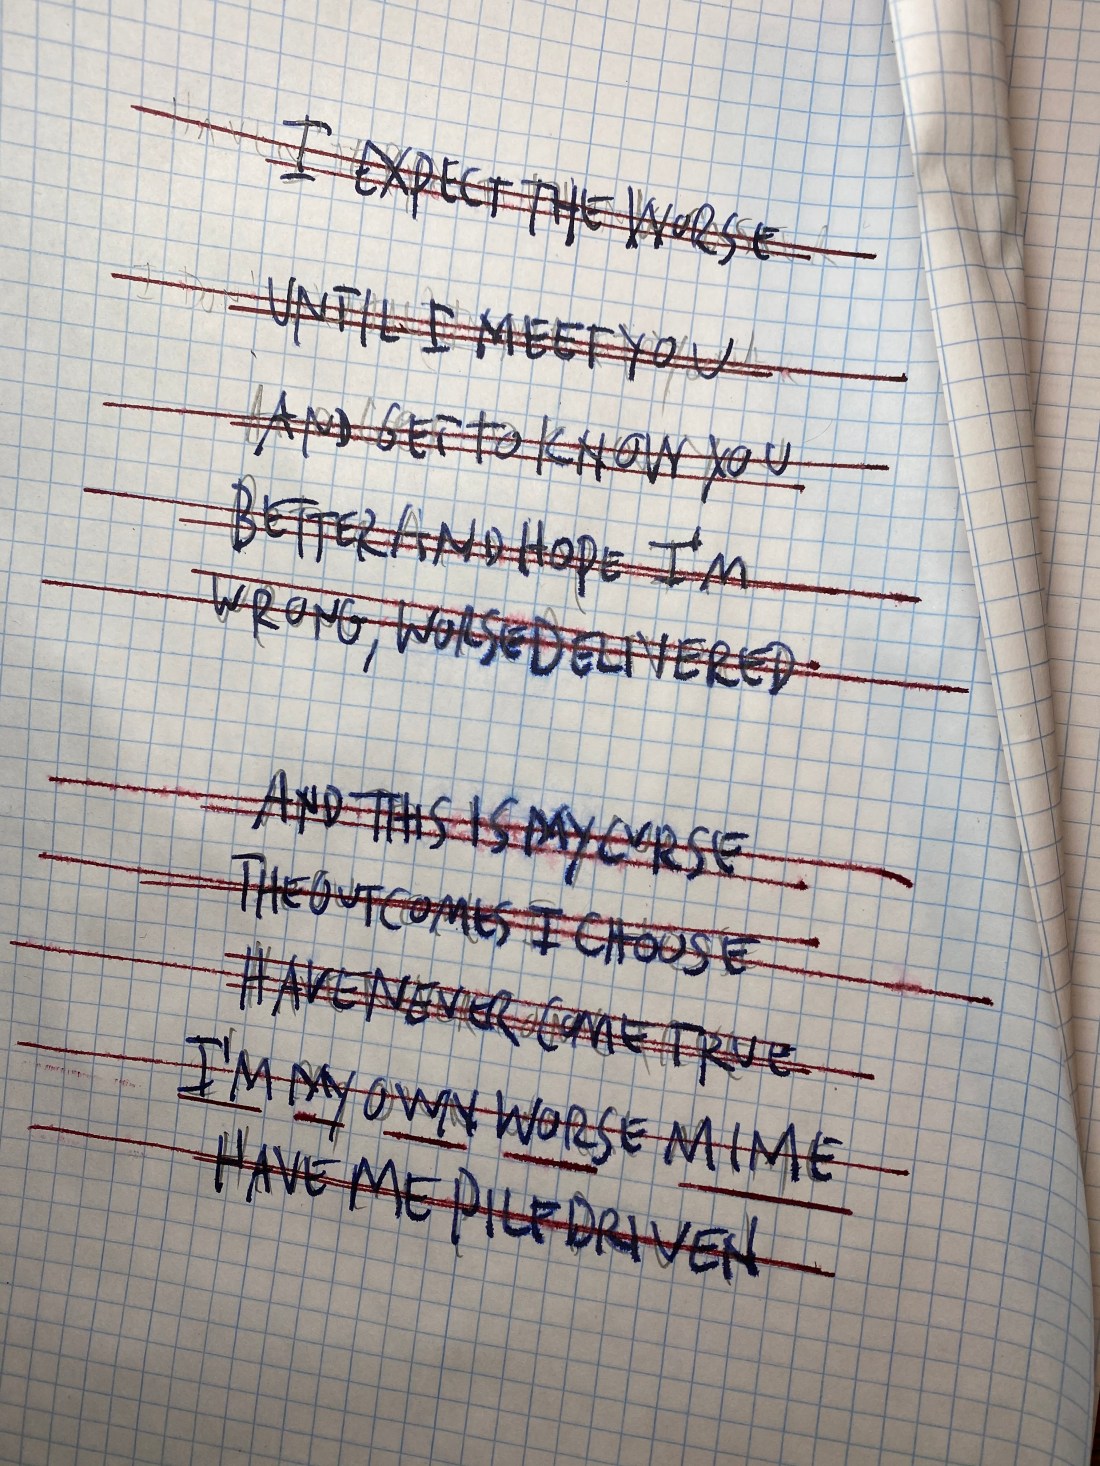 I EXPECT THE WORSE
UNTIL I MEET YOU
AND GET TO KNOW YOU
BETTER AND HOPE I'M
WRONG, WORSE DELIVERED
AND THIS IS MY CURSE
THE OUTCOMES I CHOOSE
HAVE NEVER COME TRUE
I'M MY OWN WORSE MIME
HAVE ME PILE DRIVEN